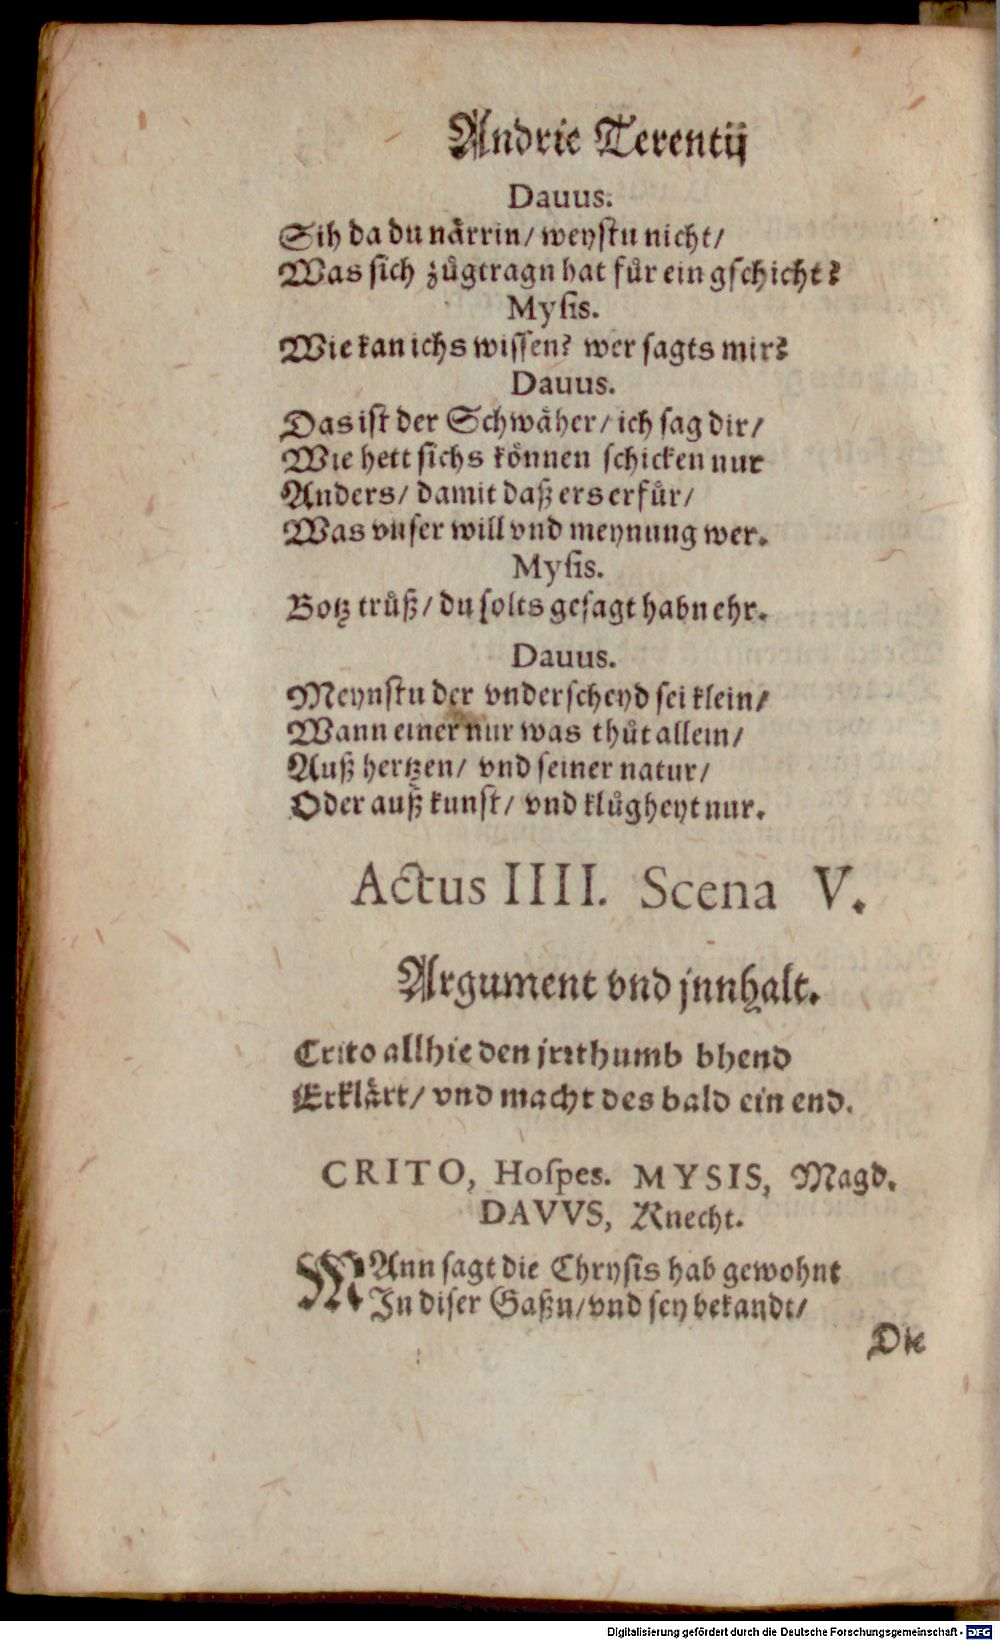 Andrie Terentij
Dauus.
Sih da du nårrin/ weystu nicht/
Was sich zůgtragn hat für ein gschicht?
Mysis.
Wie kan ichs wissen? wer sagts mir?
Dauus.
Das ist der Schwäher/ ich sag dir/
Wie hett sichs können schicken nur
Anders/ damit daß ers erfůr/
Was vnser will vnd meynung wer.
Mysis.
Botz trůß/ du solts gesagt habn ehr.
Dauus.
Meynstu der vnderscheyd sei klein/
Wann einer nur was thůt allein/
Auß hertzen/ vnd seiner natur/
Oder auß kunst/ vnd klůgheyt nur.
Actus IIII. Scena V.
Argument vnd jnnhalt.
Crito allhie den jrrthumb bhend
Erklärt/ vnd macht des bald ein end.
CRITO, Hospes. MYSIS, Magd.
DAVVS, Knecht.
MAnn sagt die Chrysis hab gewohnt
In diser Gaßn/ vnd sey bekandt/
Die
Digitalisierung gefördert durch die Deutsche Forschungsgemeinschaft - DFG